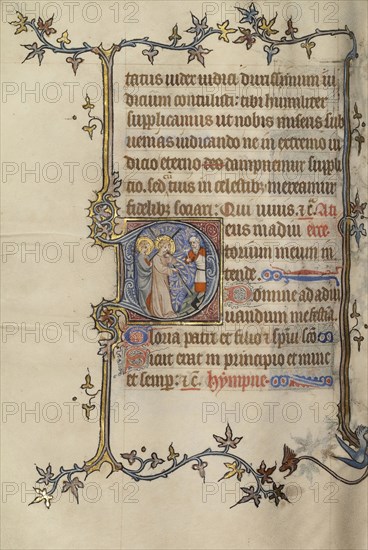 tatus iudex iudici durissimum iu
dicium contulisti: tibi humiliter
supplicamus ut nobis miseris sub
uenias iudicando ne in extremo iu
dicio eterno dampnemur suppli
cio. sed tuis in celestibus mereamur
fidelibus sociari. Qui uiuis. &c. A
eus in adiu
torium meum in
tende.
Domine ad adiu
uandum me festina
Gloria patri et filio et spiritui sancto
Sicut erat in principio et nunc
et semper: &c. hympne